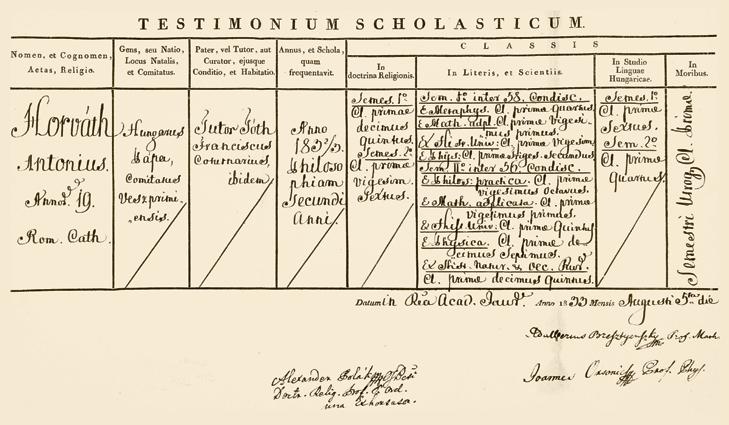 TESTIMONIUM SCHOLASTICUM.
Nomen, et Cognomen,
Aetas, Religio.
Gens, seu Natio,
Locus Natalis,
et Comitatus.
Pater, vel Tutor, aut
Curator, ejusque
Conditio, et Habitatio.
Annus, et Schola,
quam
frequentavit.
CLASSIS
In
doctrina Religionis.
In Literis, et Scientiis.
In Studio
Linguae
Hungaricae.
In
Moribus.
Horváth
Antonius.
Annor 19.
Rom. Cath.
Hungarus
Pápa,
Comitatus
Veszprimi
ensis.
Tutor Tóth
Franciscus
Coturnarius,
ibidem
Anno
1832/3.
Philoso
phiam
Secundi
Anni.
Semes. 1o.
Cl. primae
decimus
Quintus.
Semes. 2o.
Cl. primae
vigesim
Sextus.
Sem. 1o. inter 58. Condisc.
E Metaphys. Cl. primae Quartus.
E Math. adpl. Cl. primae vigesi-
mus primus.
Ex Hist. Univ: Cl. primae vigesim
E Phys: Cl. primae vigesi. secundus
Sem. IIo. inter 56. Condisc.
E Philos: practica. Cl. primae
vigesimus octavus.
E Math. adplicata. Cl. primae
vigesimus primus.
E Hist. Univ. Cl. primae Quintus
E Physica. Cl. primae de-
cimus Septimus.
Ex Hist. Natur. & Oec. Rur.
Cl. primae decimus Quintus.
Semes. 1o.
Cl. primae
Sextus.
Sem. 2o.
Cl. primae
Quartus.
Semestri Utroq Cl. primae
Datum in Ria Acad. Jaur. Anno 1833 Mensis Augusti 5ta die
Adalbertus Prof. Math.
Alexander
Doctr. Relig. Prof. & Ord.
Joannes Prof. Phys.